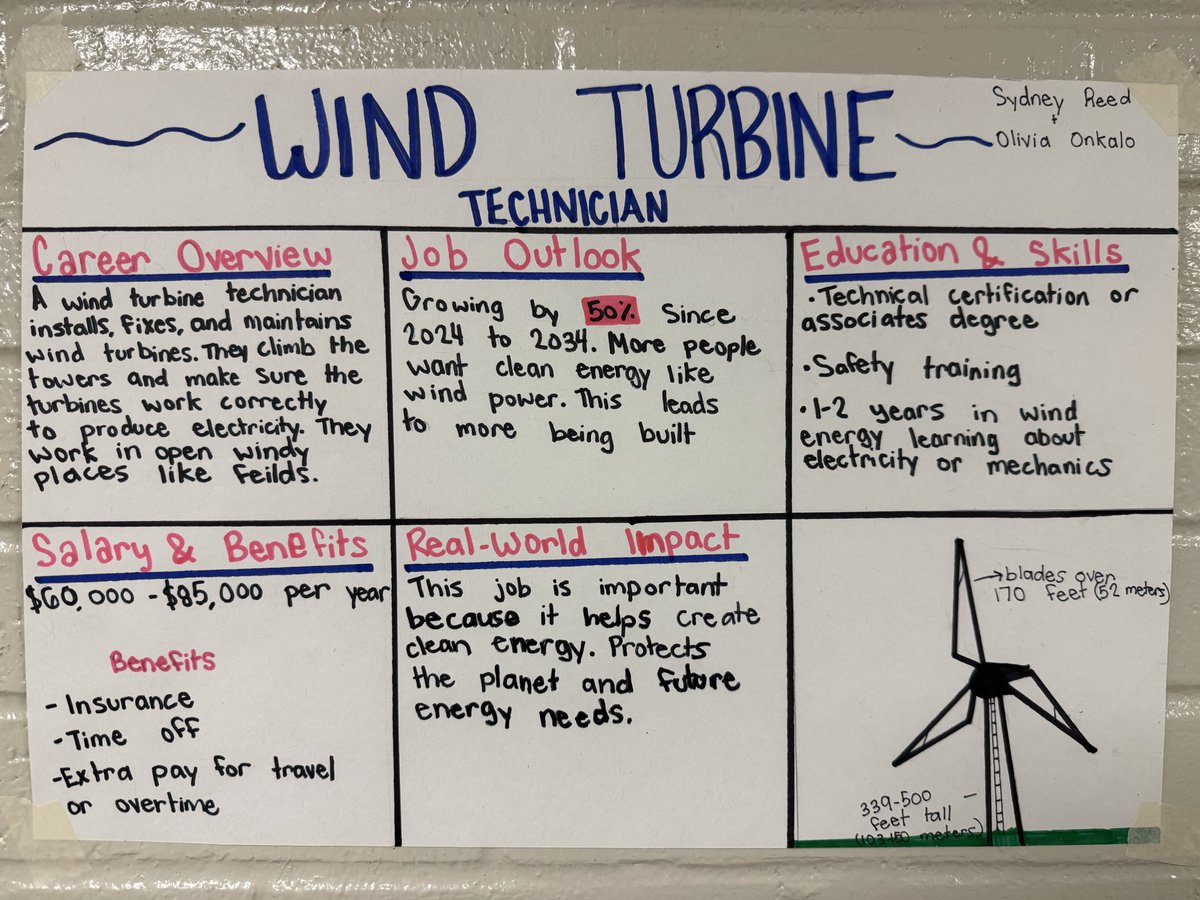 WIND TURBINE
TECHNICIAN
Sydney Reed
+
Olivia Onkalo
Career Overview
A wind turbine technician
installs, fixes, and maintains
wind turbines. They climb the
towers and make sure the
turbines work correctly
to produce electricity. They
work in open windy
places like Feilds.
Job Outlook
Growing by 50% since
2024 to 2034. More people
want clean energy like
wind power. This leads
to more being built
Education & Skills
•Technical certification or
associates degree
•Safety training
•1-2 years in wind
energy learning about
electricity or mechanics
Salary & Benefits
$60,000 - $85,000 per year
Benefits
- Insurance
- Time off
- Extra pay for travel
or overtime
Real-World Impact
This job is important
because it helps create
clean energy. Protects
the planet and future
energy needs.
→blades over
170 feet (52 meters)
339-500
feet tall
(103-150 meters)